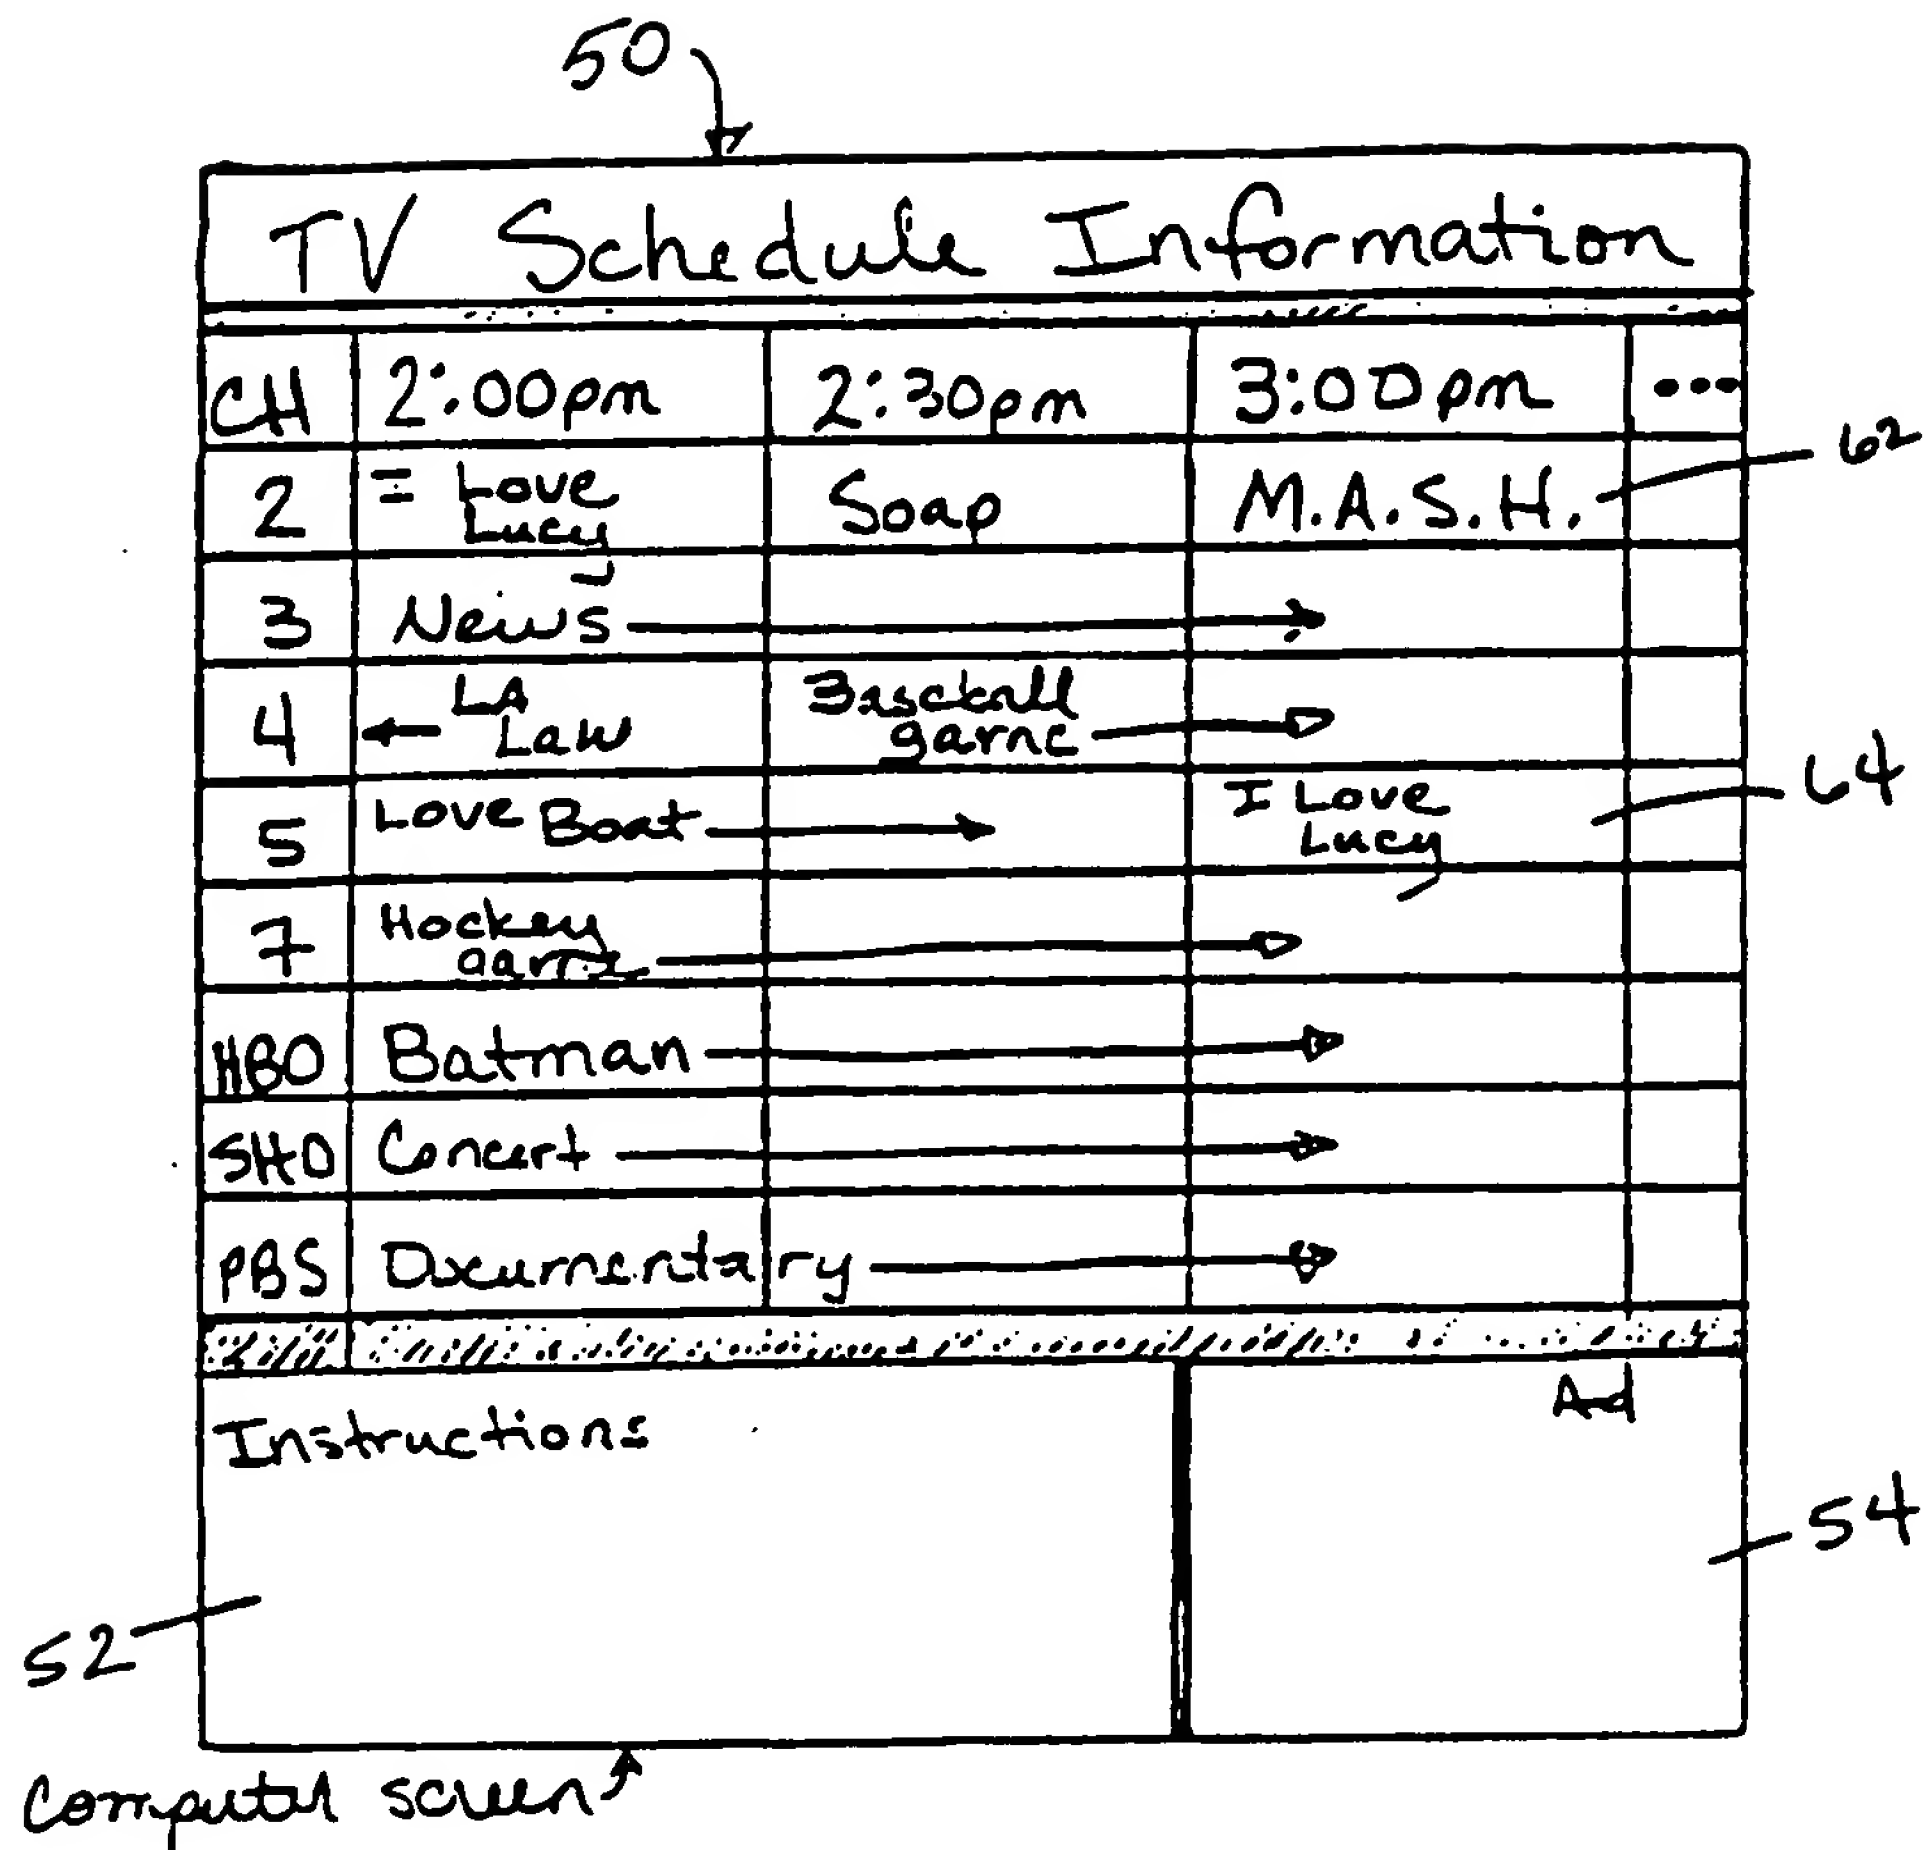 50
TV Schedule Information
CH 2:00pm 2:30pm 3:00pm ...
2 I Love Lucy Soap M.A.S.H.
62
3 News
4 LA Law Baseball game
5 Love Boat I Love Lucy
64
7 Hockey game
HBO Batman
SHO Concert
PBS Documentary
Instructions Ad
54
52
Computer screen